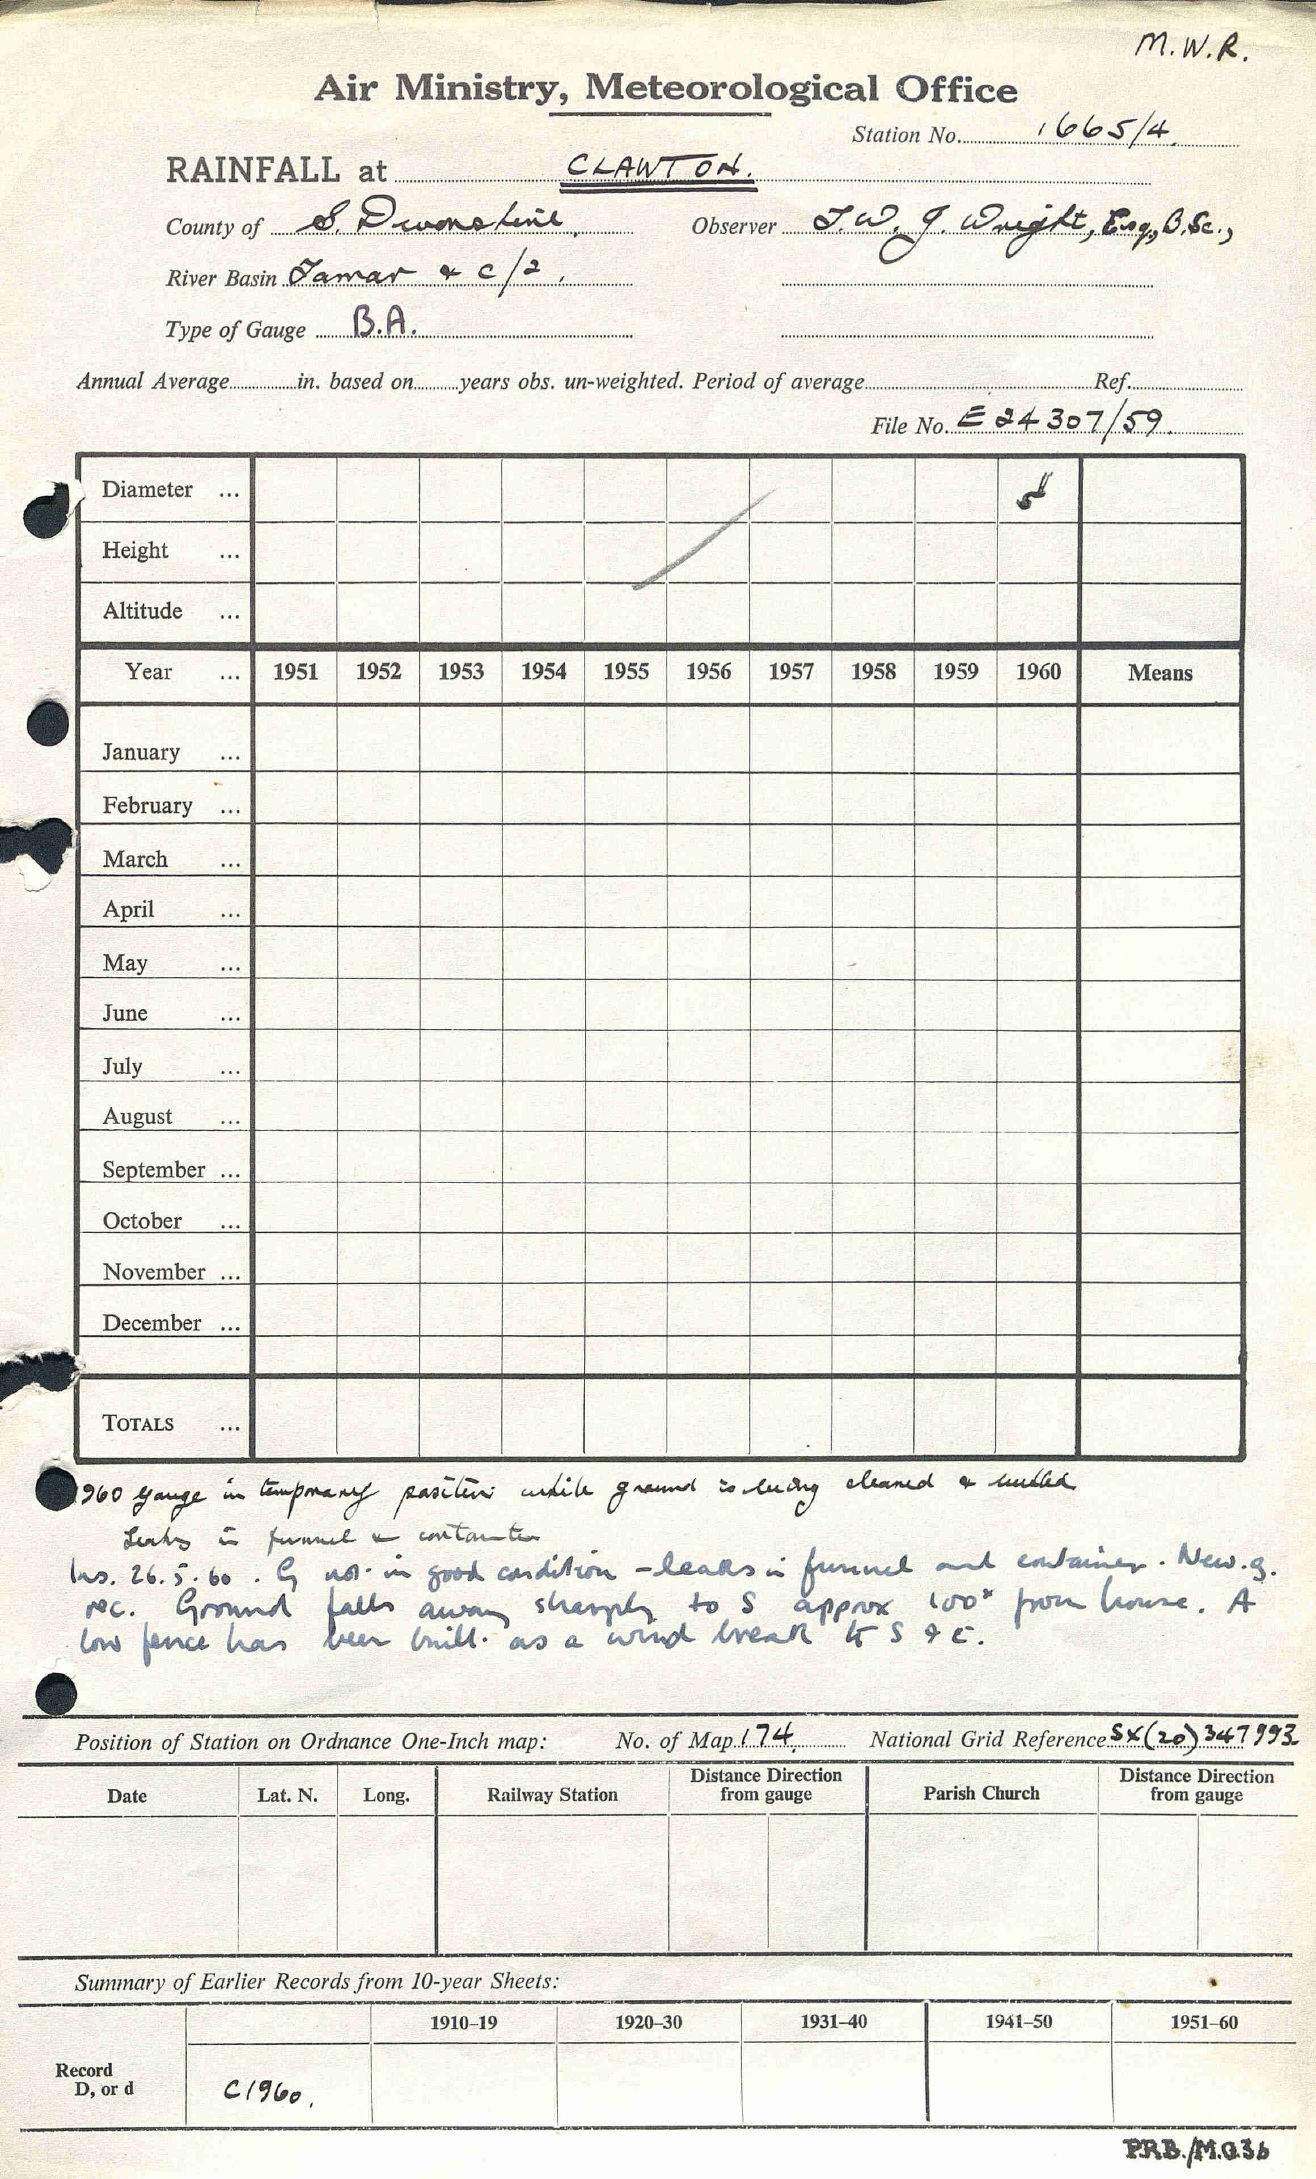 M.W.R.
Air Ministry, Meteorological Office
Station No. 1665/4.
RAINFALL at CLAWTON.
County of S. Devonshire. Observer T.W. J. Wright, Esq., B.Sc.,
River Basin Tamar & c/2.
Type of Gauge B.A.
Annual Average in. based on years obs. un-weighted. Period of average Ref.
File No. E 24307/59.
Diameter ... 5"
Height ...
Altitude ...
Year ... 1951 1952 1953 1954 1955 1956 1957 1958 1959 1960 Means
January ...
February ...
March ...
April ...
May ...
June ...
July ...
August ...
September ...
October ...
November ...
December ...
TOTALS ...
1960 gauge in temporary position while ground is being cleared &
Leaks in funnel & container
Ins. 26.5.60. G not in good condition - leaks in funnel and container. New g.
rec. Ground falls away sharply to S approx 100x from house. A
low fence has been built as a wind break to S & E.
Position of Station on Ordnance One-Inch map: No. of Map 174. National Grid Reference SX(20)347993
Date Lat. N. Long. Railway Station Distance Direction from gauge Parish Church Distance Direction from gauge
Summary of Earlier Records from 10-year Sheets:
1910–19 1920–30 1931–40 1941–50 1951–60
Record
D, or d C1960.
P.R.B./M.O.3b